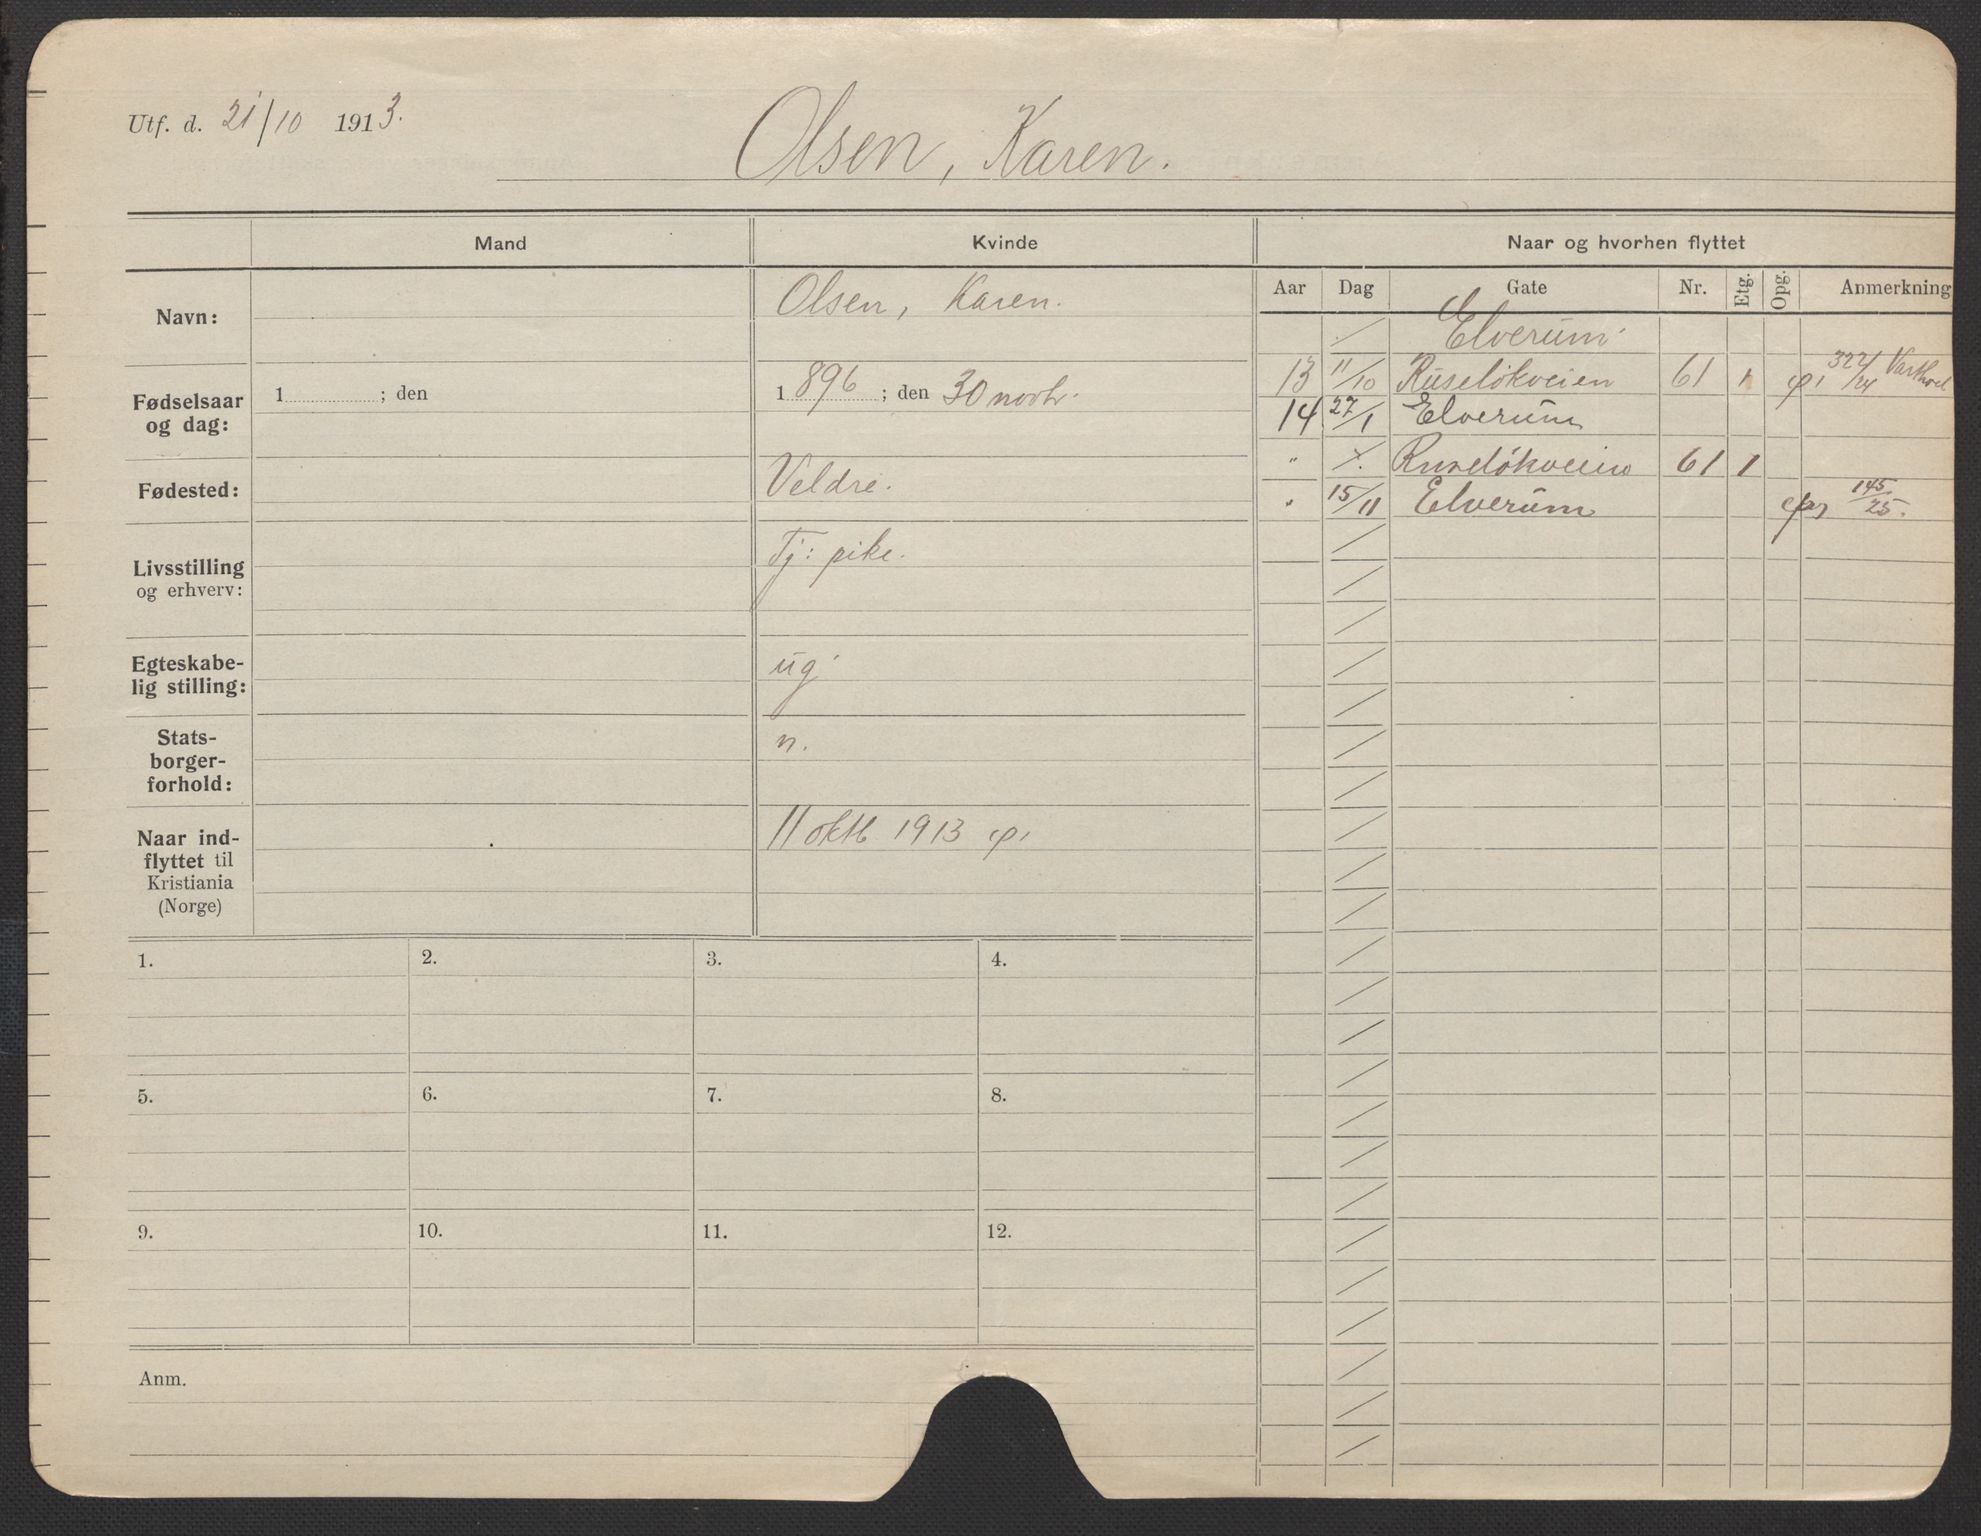 Utf. d. 21/10 1913.
Olsen, Karen.
Mand Kvinde Naar og hvorhen flyttet
Aar Dag Gate Nr. Etg. Opg. Anmerkning
Navn: Olsen, Karen.
Fødselsaar og dag: 1 ; den 1 896 ; den 30 novbr.
Fødested: Veldre.
Livsstilling og erhverv: Tj: pike.
Egteskabe-
lig stilling: ug
Stats-
borger-
forhold: n.
Naar ind-
flyttet til
Kristiania
(Norge)
11 oktb 1913
/ Elverum
13 11/10 Ruseløkveien 61 1
14 27/1 Elverum
" / Ruseløkveien 61 1
" 15/11 Elverum 145/25.
1. 2. 3. 4.
5. 6. 7. 8.
9. 10. 11. 12.
Anm.